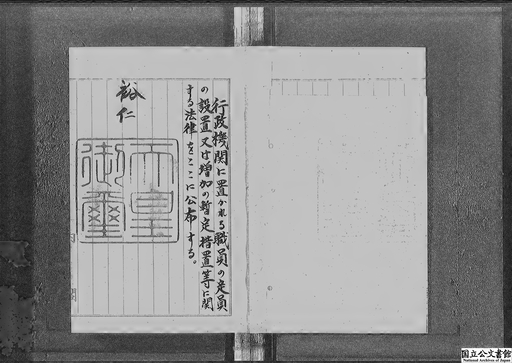 行政機関に置かれる職員の定員
の設置又は増加の暫定措置等に関
する法律をここに公布する。
裕仁
天皇
御璽
国立公文書館
National Archives of Japan